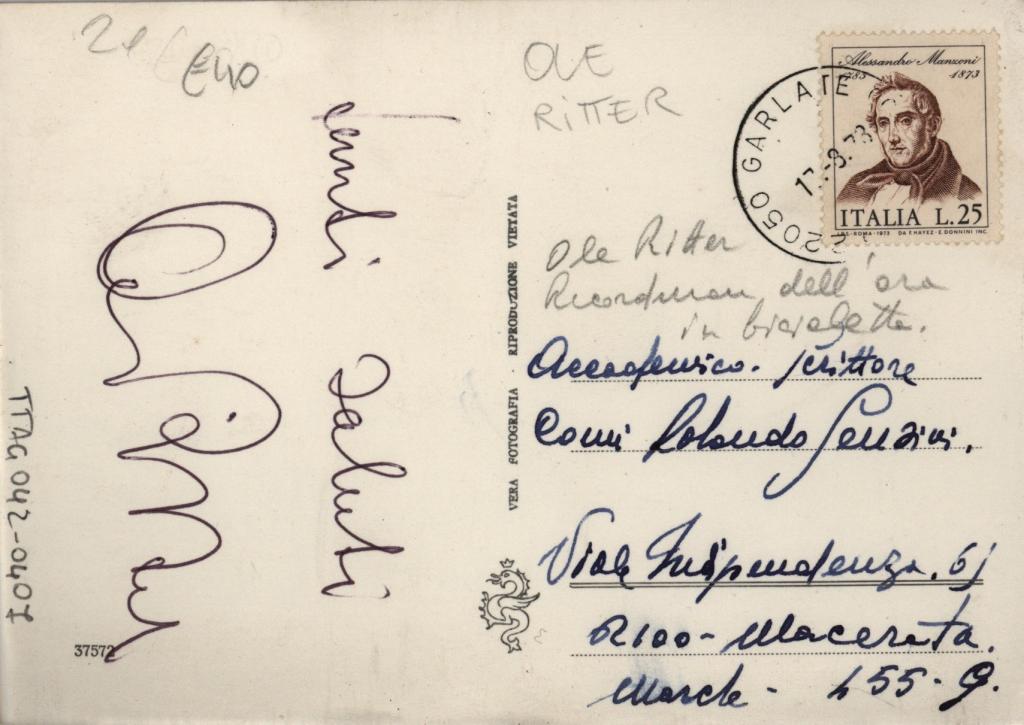 21
Euo
OLE
RiTTER
tanti
saluti
Ole Ritter
Alessandro Manzoni
1785 1873
ITALIA L.25
I.P.S.-ROMA-1973 DA F.HAYEZ-E.DONNINI INC
22050 GARLATE
-8.73
Ole Ritter
Recordman dell'ora
in bicicletta.
Accademico. scrittore
Comi Rolando
Viale Indipendenza.
6100 - Macerata.
Marche - 455-G.
VERA FOTOGRAFIA - RIPRODUZIONE VIETATA
37572
TTAG 042-0407